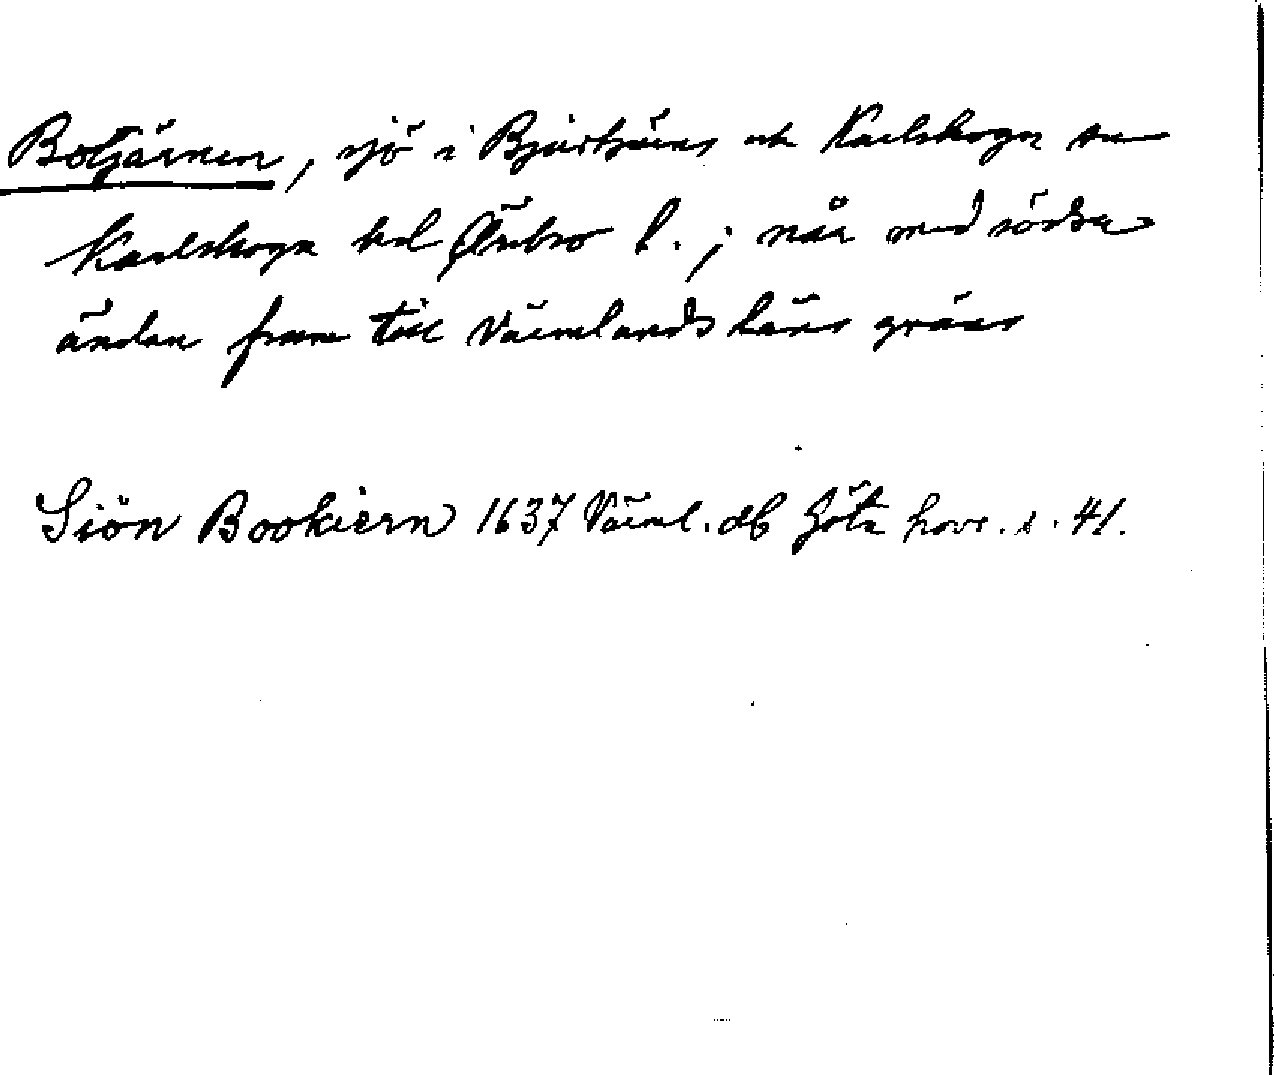 Botjärnen, sjö i Bjurtjärns och Karlskoga sn
Karlskoga hd Örebro l.; når med södra
änden fram till Värmlands läns gräns
Siön Bookiern 1637 Värml. db Göta hovr. s. 41.